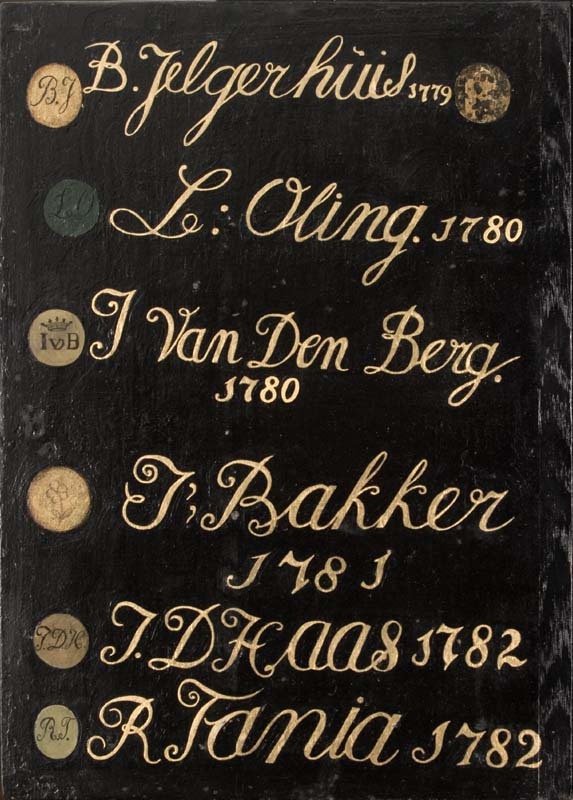 B.J B. Jelgerhüis 1779
L.O L: Oling. 1780
IVB J Van Den Berg.
1780
J; Bakker
1781
J.DH J. D Haas 1782
R.T. R Tania 1782